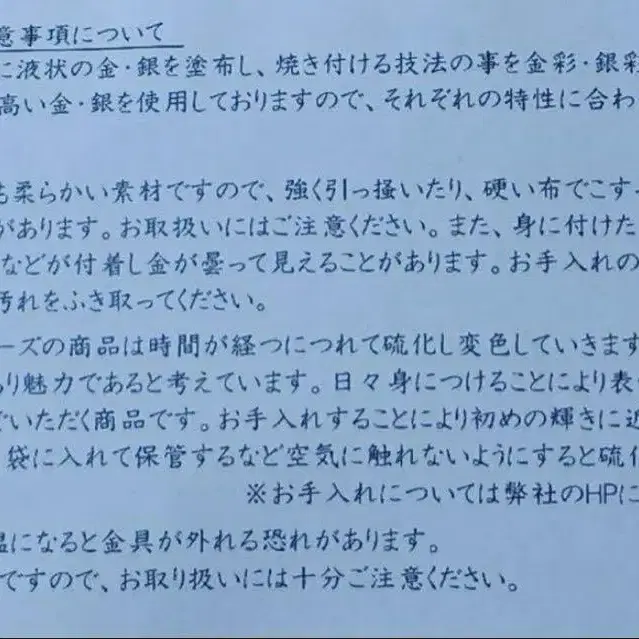 意事項について
に液状の金・銀を塗布し、焼き付ける技法の事を金彩・銀彩
高い金・銀を使用しておりますので、それぞれの特性に合わ
も柔らかい素材ですので、強く引っ掻いたり、硬い布でこす
があります。お取扱いにはご注意ください。また、身に付けた
などが付着し金が曇って見えることがあります。お手入れの
汚れをふき取ってください。
ーズの商品は時間が経つにつれて硫化し変色していきます
り魅力であると考えています。日々身につけることにより表
でいただく商品です。お手入れすることにより初めの輝きに近
袋に入れて保管するなど空気に触れないようにすると硫化
※お手入れについては弊社のHPに
温になると金具が外れる恐れがあります。
ですので、お取り扱いには十分ご注意ください。